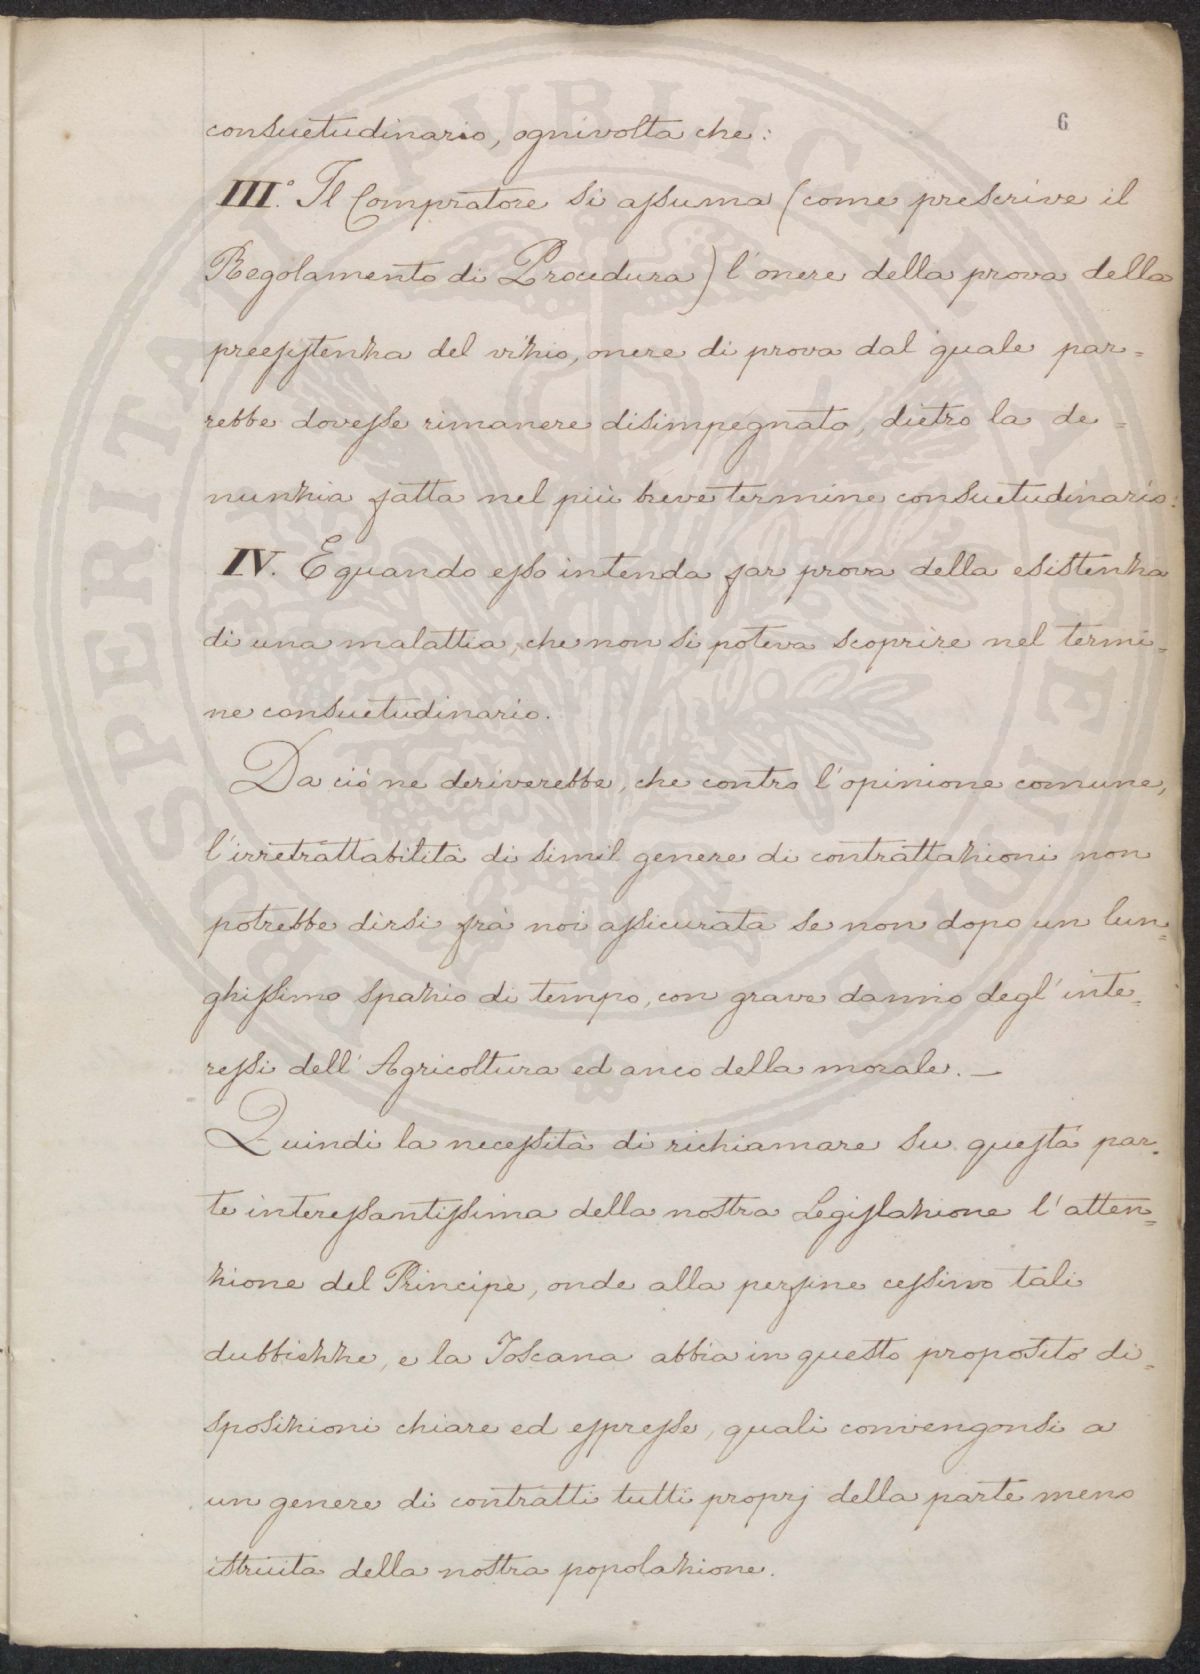 6
consuetudinario, ognivolta che:
III.° Il Compratore si assuma (come prescrive il
Regolamento di Procedura) l'onere della prova della
preesistenza del vizio, onere di prova dal quale par=
rebbe dovesse rimanere disimpegnato, dietro la de=
nunzia fatta nel più breve termine consuetudinario:
IV. E quando esso intenda far prova della esistenza
di una malattia, che non si poteva scoprire nel termi=
ne consuetudinario.
Da ciò ne deriverebbe, che contro l'opinione comune,
l'irretrattabilità di simil genere di contrattazioni non
potrebbe dirsi frà noi assicurata se non dopo un lun=
ghissimo spazio di tempo, con grave danno degl'inte=
ressi dell'Agricoltura ed anco della morale. —
Quindi la necessità di richiamare su questa par=
te interessantissima della nostra Legislazione l'atten=
zione del Principe, onde alla perfine cessino tali
dubbiezze, e la Toscana abbia in questo proposito di=
sposizioni chiare ed espresse, quali convengonsi a
un genere di contratti tutti proprj della parte meno
istruita della nostra popolazione.
PROSPERITATI PUBLICAE AUGENDAE